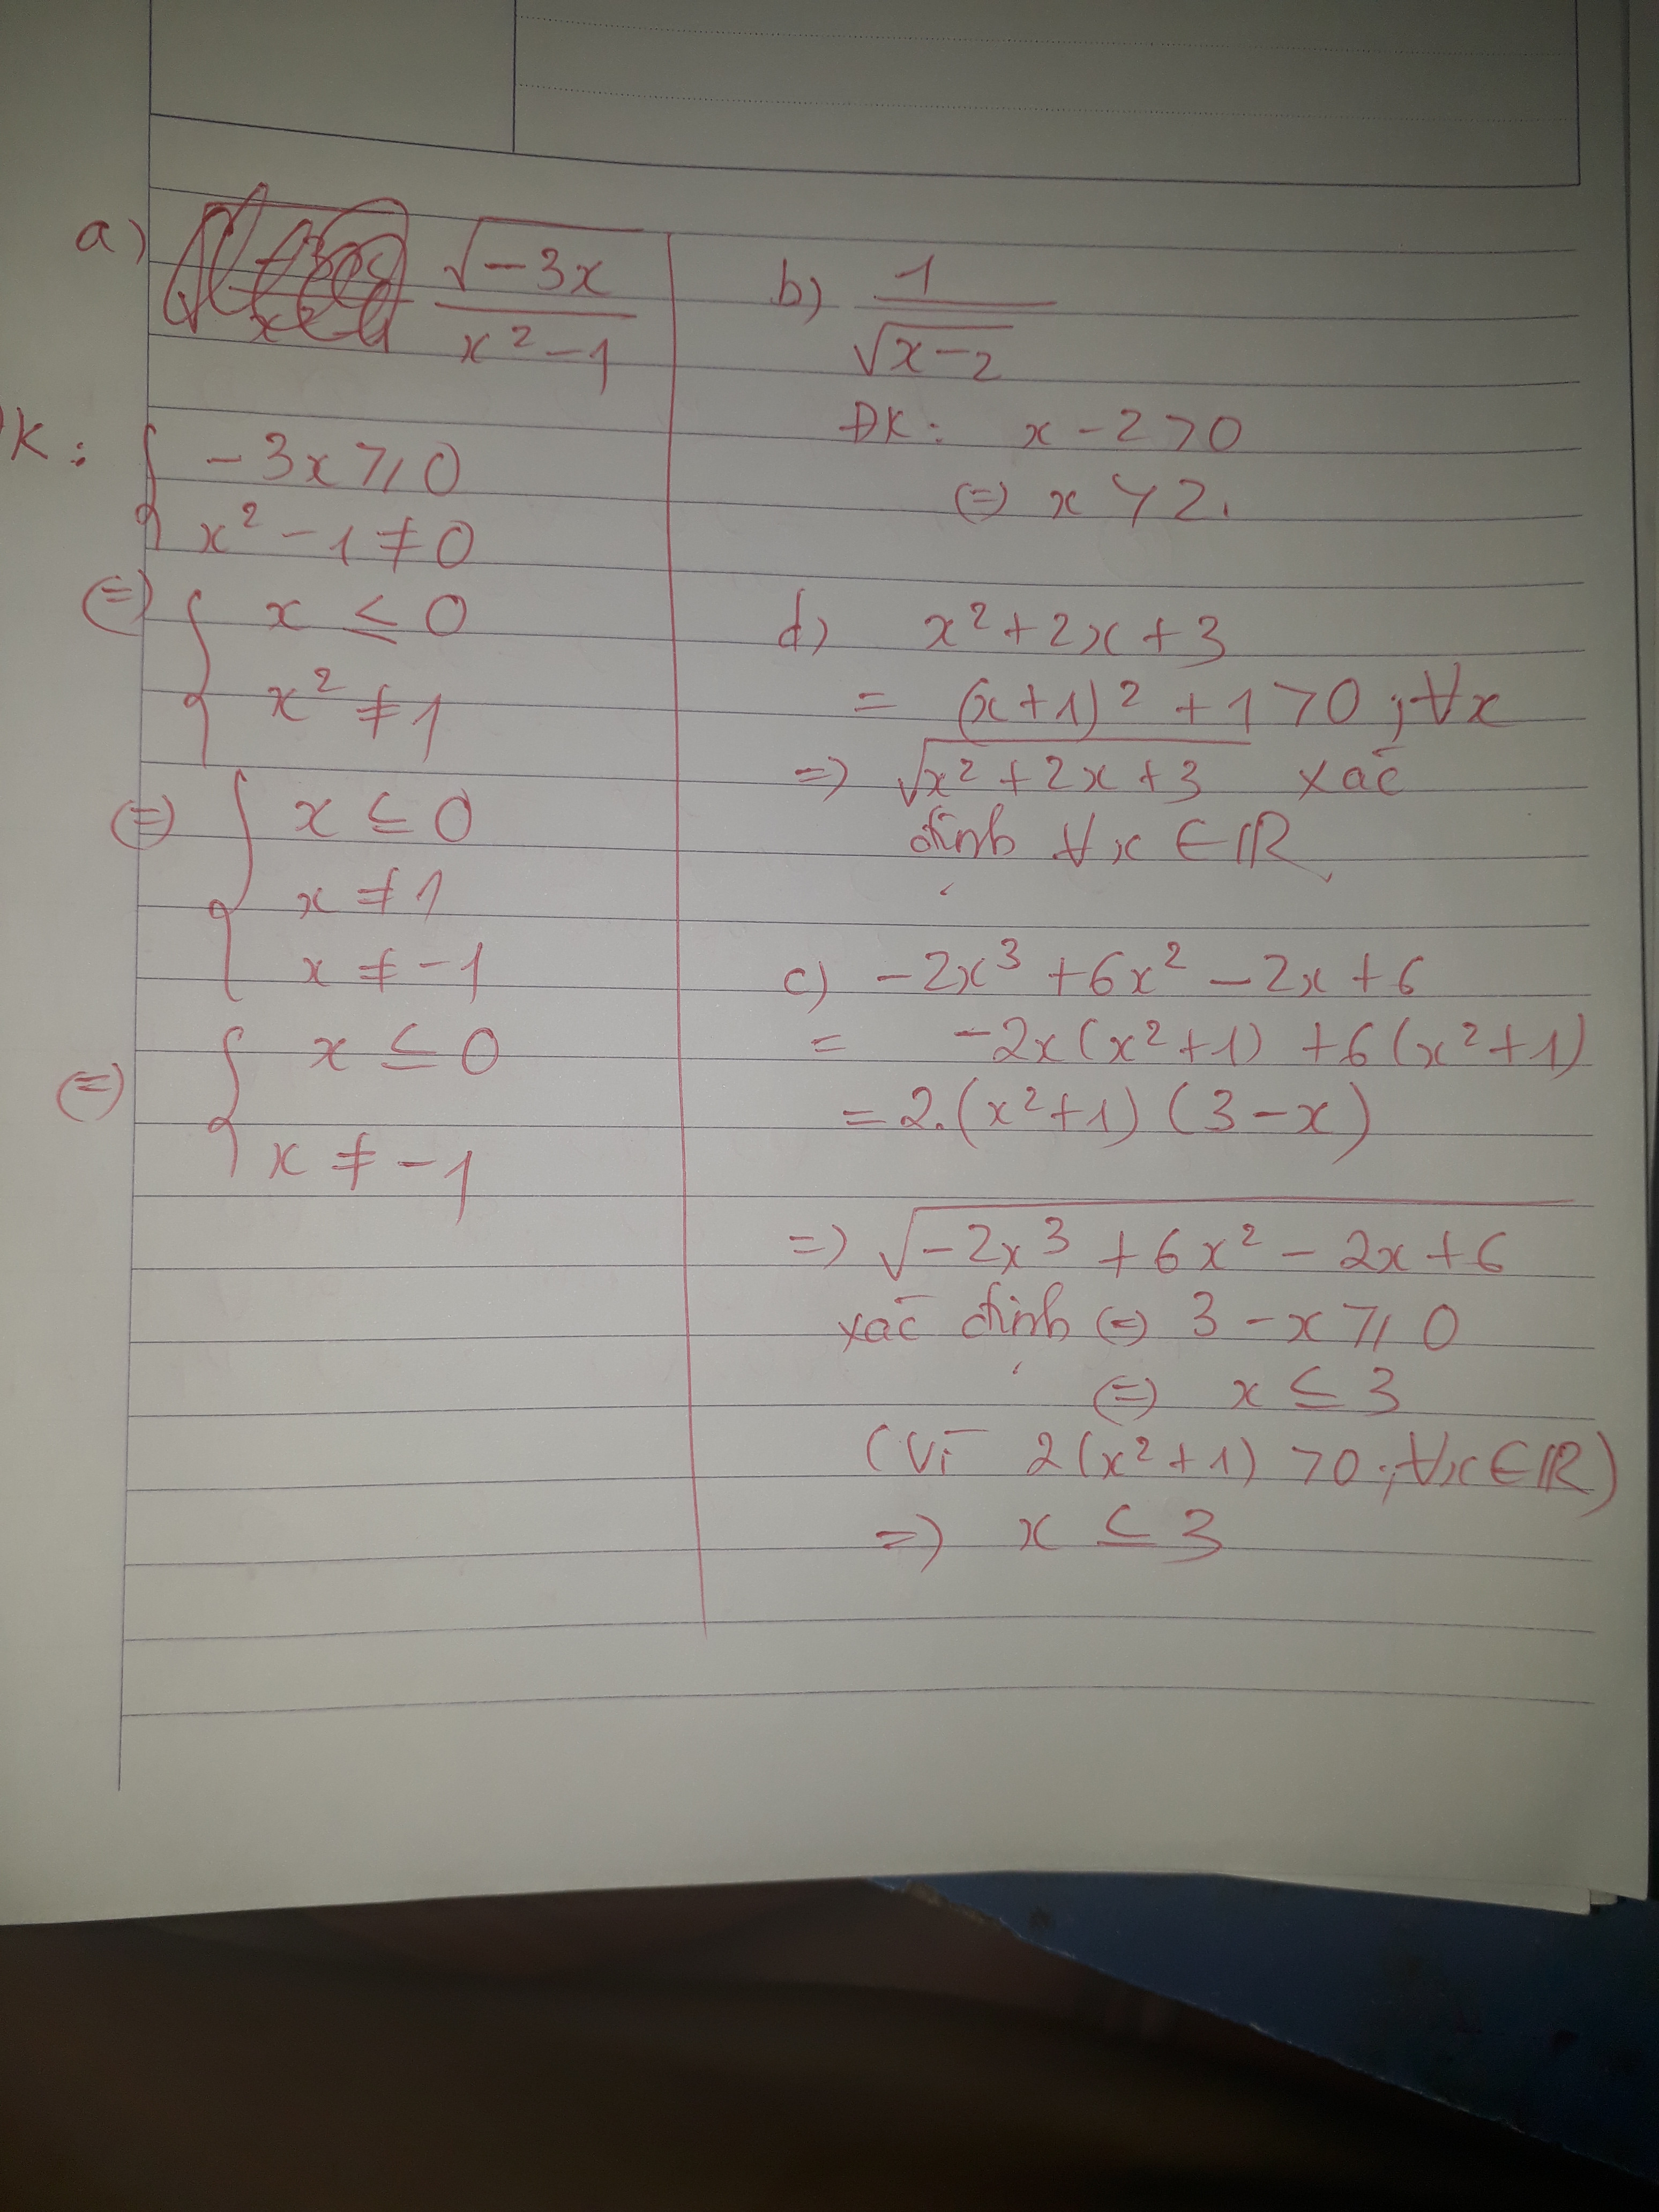 a) √-3x / x² - 1
K: { -3x ⩾ 0
x² - 1 ≠ 0
(=) { x ≤ 0
x² ≠ 1
(=) { x ≤ 0
x ≠ 1
x ≠ -1
(=) { x ≤ 0
x ≠ -1
b) 1 / √x-2
ĐK: x - 2 > 0
(=) x > 2.
d) x² + 2x + 3
= (x+1)² + 1 > 0 ; ∀x
=) √x² + 2x + 3 xác
định ∀x ∈ IR
c) -2x³ + 6x² - 2x + 6
= -2x(x²+1) + 6(x²+1)
= 2.(x²+1)(3-x)
=) √-2x³ + 6x² - 2x + 6
xác định (=) 3 - x ⩾ 0
(=) x ≤ 3
(Vì 2(x²+1) > 0 ; ∀x ∈ IR)
=) x ≤ 3